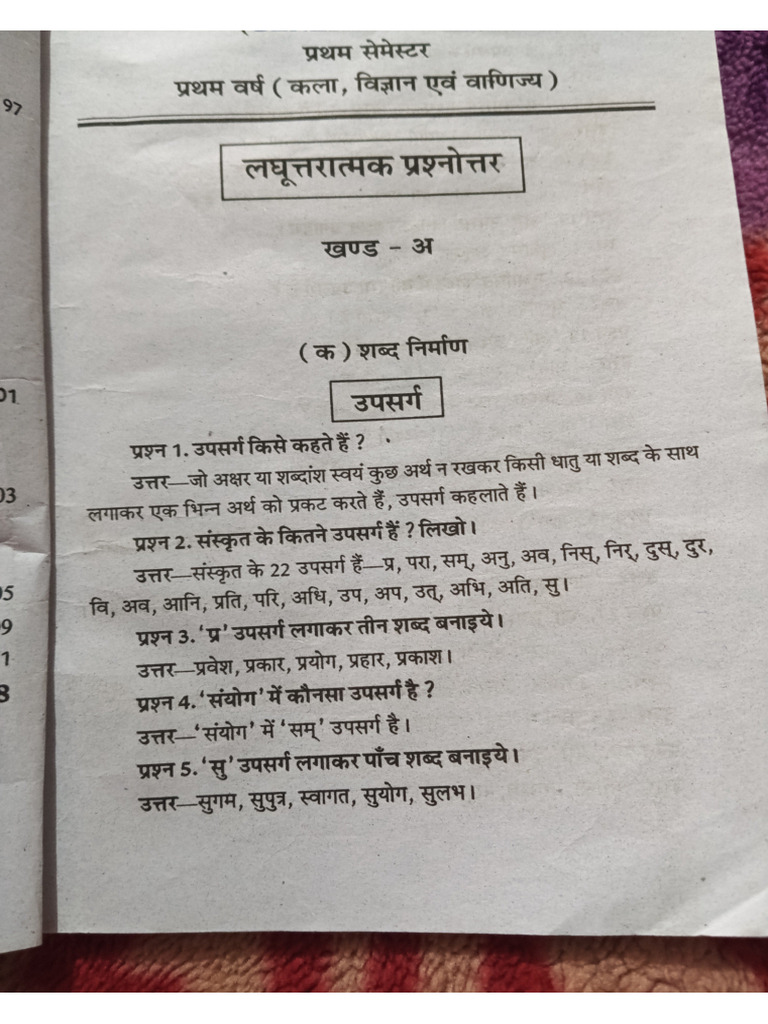 प्रथम सेमेस्टर
97
प्रथम वर्ष ( कला, विज्ञान एवं वाणिज्य )
लघूत्तरात्मक प्रश्नोत्तर
खण्ड - अ
( क ) शब्द निर्माण
01
उपसर्ग
प्रश्न 1. उपसर्ग किसे कहते हैं ?
उत्तर—जो अक्षर या शब्दांश स्वयं कुछ अर्थ न रखकर किसी धातु या शब्द के साथ
03
लगाकर एक भिन्न अर्थ को प्रकट करते हैं, उपसर्ग कहलाते हैं।
प्रश्न 2. संस्कृत के कितने उपसर्ग हैं ? लिखो।
उत्तर—संस्कृत के 22 उपसर्ग हैं—प्र, परा, सम्, अनु, अव, निस्, निर्, दुस्, दुर,
05
वि, अव, आनि, प्रति, परि, अधि, उप, अप, उत्, अभि, अति, सु।
9
प्रश्न 3. ‘प्र’ उपसर्ग लगाकर तीन शब्द बनाइये।
1
उत्तर—प्रवेश, प्रकार, प्रयोग, प्रहार, प्रकाश।
8
प्रश्न 4. ‘संयोग’ में कौनसा उपसर्ग है ?
उत्तर—‘संयोग’ में ‘सम्’ उपसर्ग है।
प्रश्न 5. ‘सु’ उपसर्ग लगाकर पाँच शब्द बनाइये।
उत्तर—सुगम, सुपुत्र, स्वागत, सुयोग, सुलभ।